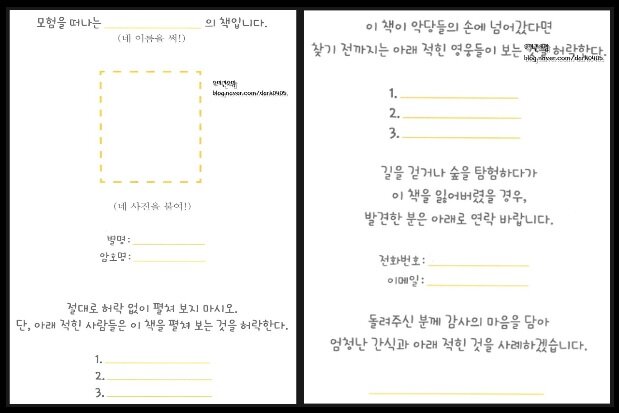 모험을 떠나는 의 책입니다.
(네 이름을 써!)
blog.naver.com/dark0405
(네 사진을 붙여!)
별명:
암호명:
절대로 허락 없이 펼쳐 보지 마시오.
단, 아래 적힌 사람들은 이 책을 펼쳐 보는 것을 허락한다.
1.
2.
3.
이 책이 악당들의 손에 넘어갔다면
찾기 전까지는 아래 적힌 영웅들이 보는 것을 허락한다.
blog.naver.com/dark0405
1.
2.
3.
길을 걷거나 숲을 탐험하다가
이 책을 잃어버렸을 경우,
발견한 분은 아래로 연락 바랍니다.
전화번호:
이메일:
돌려주신 분께 감사의 마음을 담아
엄청난 간식과 아래 적힌 것을 사례하겠습니다.